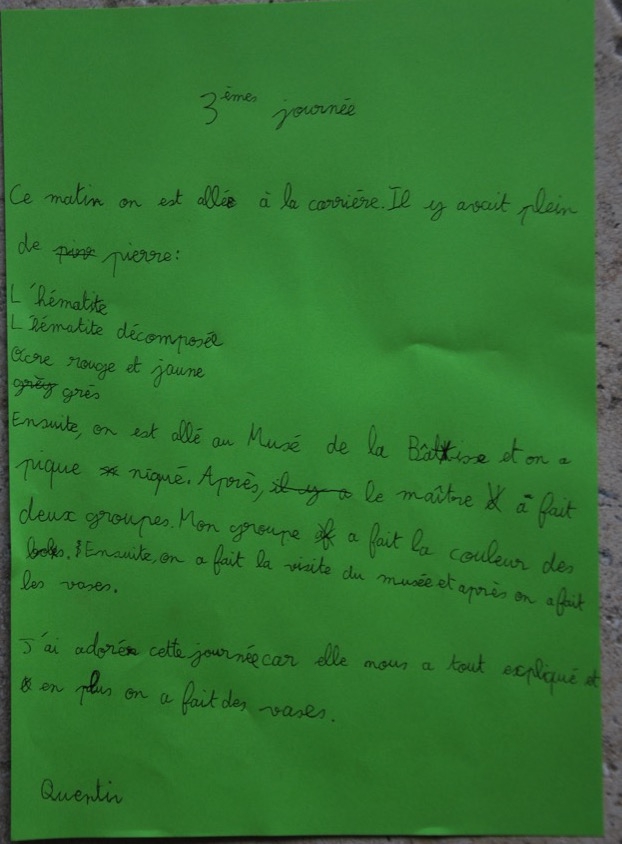 3èmes journée
Ce matin on est allée à la carrière. Il y avait plein
de pierre:
L'hématite
L'éématite décomposée
Ocre rouge et jaune
grès
Ensuite, on est allé au Musé de la Bâtisse et on a
pique niqué. Après, il y a le maître à fait
deux groupes. Mon groupe a fait la couleur des
bols. Ensuite, on a fait la visite du musée et après on a fait
les vases.
J'ai adorée cette journée car elle nous a tout expliqué et
en plus on a fait des vases.
Quentin